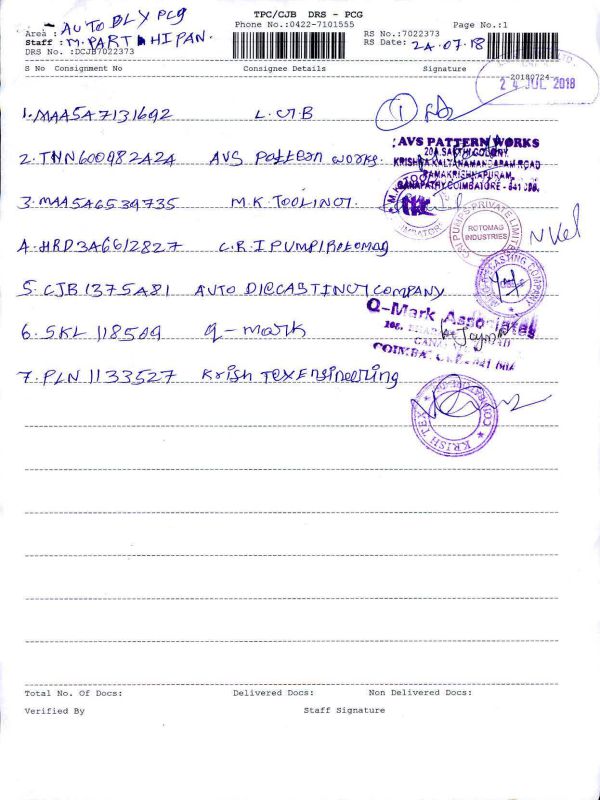 TPC/CJB DRS - PCG
Area : - AUTO DLY PCG
Phone No.:0422-7101555
Page No.:1
Staff : M.PARTHIPAN.
RS No.:7022373
DRS No. :DCJB7022373
RS Date: 24.07.18
S No Consignment No Consignee Details Signature
20180724
24 JUL 2018
1. MAA5A7131692 L.G.B
2. TNN600982A2A AVS Pattern works.
AVS PATTERN WORKS
20A, SAKTHI COLONY,
KRISHNA KALYANAMANDABAM ROAD
RAMAKRISHNAPURAM,
GANAPATHY, COIMBATORE - 641 006.
3. MAA5A6539735 M.K.TOOLING.
4. HRD3A6612827 C.R.I PUMP/Rotomag
ROTOMAG
INDUSTRIES
5. CJB1375A81 AUTO DIECASTING COMPANY
6. SKL 118509 Q-mark
Q-Mark Associates
7. PLN 1133527 Krish Tex Engineering
KRISH TEX
Total No. Of Docs: Delivered Docs: Non Delivered Docs:
Verified By Staff Signature